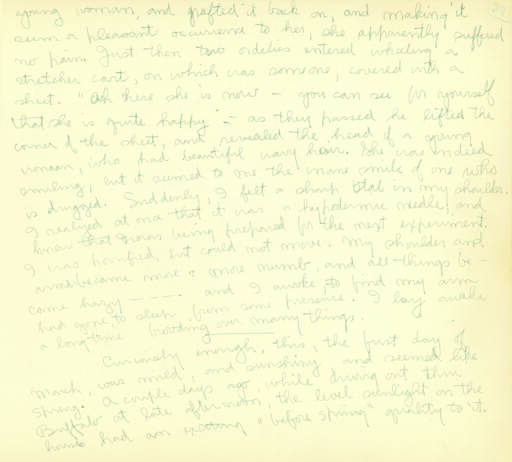 young woman, and grafted it back on, and making it
seem a pleasant occurrence to her, she apparently suffered
no pain. Just then two orderlies entered wheeling a
stretcher cart, on which was someone, covered with a
sheet. "Ah here she is now – you can see for yourself
that she is quite happy" – as they passed he lifted the
corner of the sheet, and revealed the head of a young
woman, who had beautiful wavy hair. She was indeed
smiling, but it seemed to me the inane smile of one who
is drugged. Suddenly, I felt a sharp stab in my shoulder.
I realized at once that it was a hypodermic needle, and
knew that I was being prepared for the next experiment.
I was horrified, but could not move. My shoulder and
arm became more & more numb, and all things be-
came hazy – – – – . and I awoke to find my arm
had gone to sleep from some pressure. I lay awake
a long time brooding over many things.
Curiously enough, this, the first day of
March, was mild, and sunshiny and seemed like
spring. A couple days ago, while driving out thru
Buffalo at late afternoon, the level sunlight on the
houses had an exciting "before spring" quality to it.